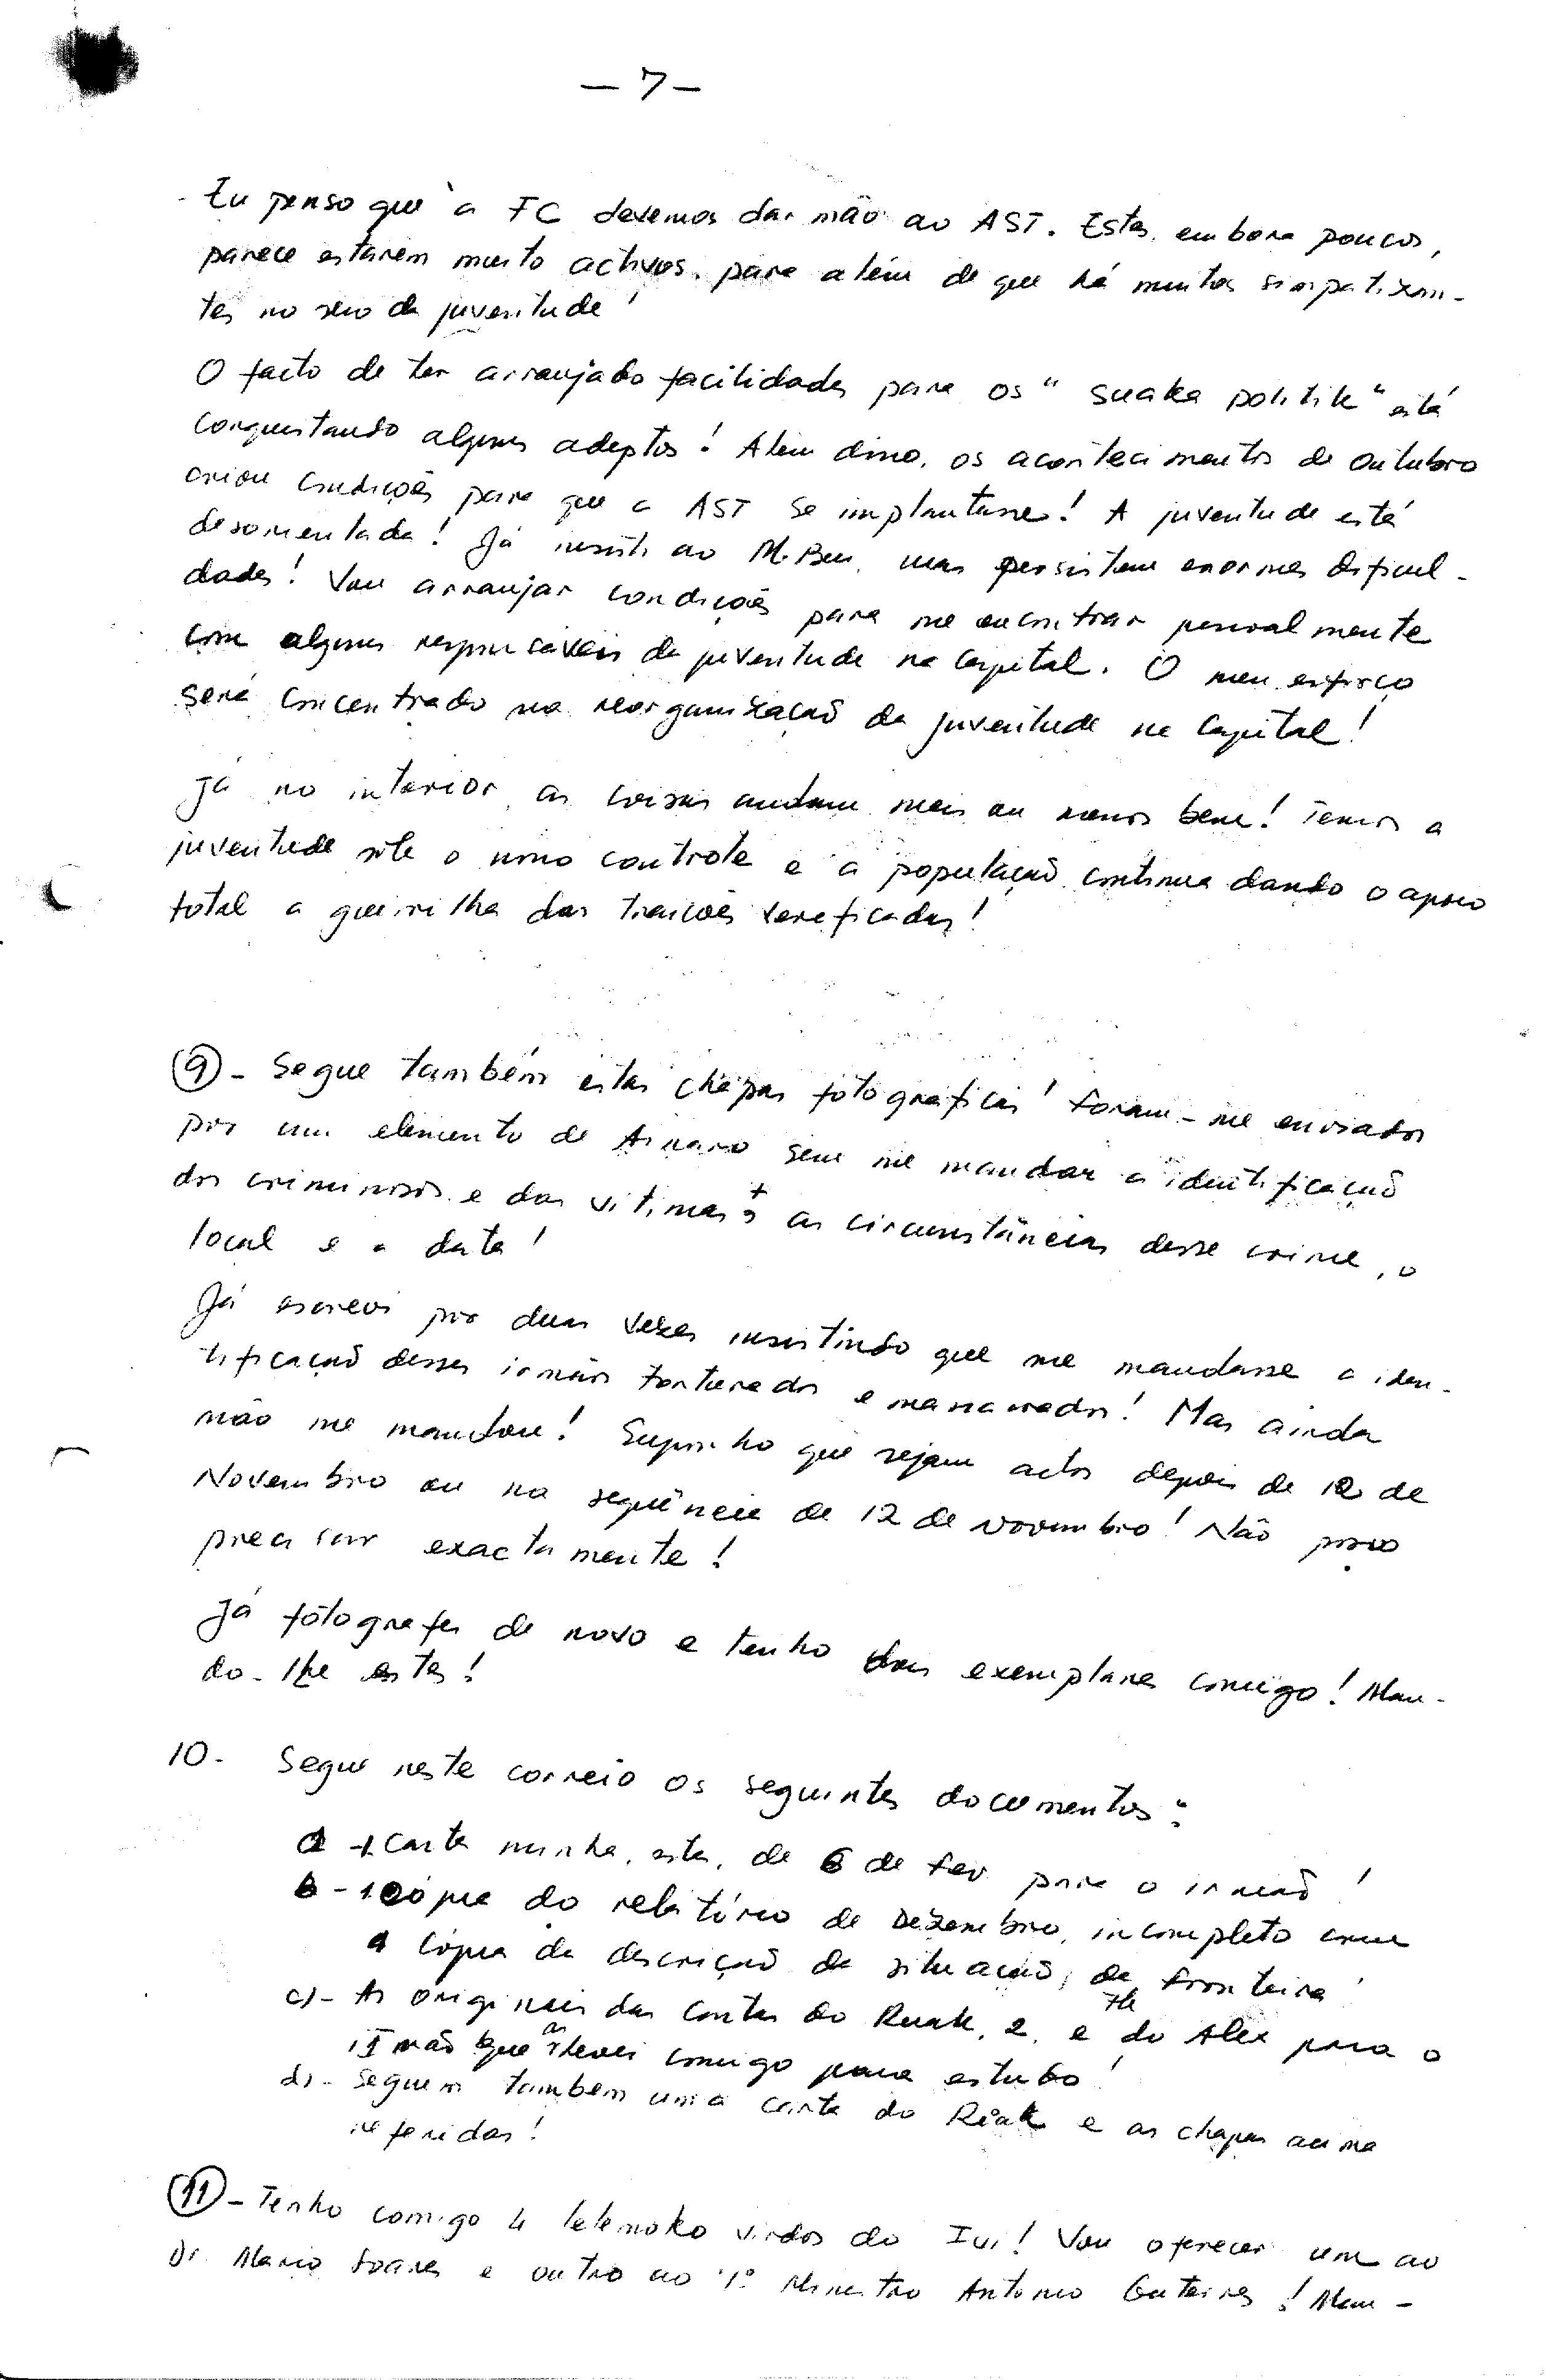 — 7 —
- Eu penso que a FC devemos dar mão ao AST. Estes, embora poucos,
parece estarem muito activos, para além de que há muitos simpatizan-
tes no seio da juventude!
O facto de ter arranjado facilidades para os "suaka politik" está
conquistando alguns adeptos! Além disso, os acontecimentos de Outubro
criou condições para que a AST se implantasse! A juventude está
desorientada! Já insisti ao M. Ben, mas persistem enormes dificul-
dades! Vou arranjar condições para me encontrar pessoalmente
com alguns responsáveis da juventude na Capital. O meu esforço
será concentrado na reorganização da juventude na Capital!
Já no interior, as coisas andam mais ou menos bem! Temos a
juventude sob o nosso controle e a população continua dando o apoio
total a guerrilha das traições verificadas!
9 - Segue também estas chapas fotográficas! Foram-me enviados
por um elemento de Ainaro sem me mandar a identificação
dos criminosos e das vitimas + as circunstâncias desse crime, o
local e a data!
Já escrevi por duas vezes insistindo que me mandasse a iden-
tificação desses irmãos torturados e massacrados! Mas ainda
não me mandou! Suponho que sejam actos depois de 12 de
Novembro ou na sequência de 12 de Novembro! Não posso
precisar exactamente!
Já fotografei de novo e tenho dois exemplares comigo! Man-
do-lhe estes!
10- Segue neste correio os seguintes documentos:
a - 1 Carta minha, esta, de 6 de Fev para o irmão!
b - 1 cópia do relatório de Dezembro, incompleto com
a cópia da descrição da situação, da fronteira!
c) - As originais das cartas do Ruak, 2, e 7h do Alex para o
irmão que as levei comigo para estudo!
d) - Seguem também uma carta do Riak e as chapas acima
referidas!
11 - Tenho comigo 4 telemoko vindos do Ivi! Vou oferecer um ao
Dr. Mario Soares e outro ao 1º Ministro Antonio Guterres! Man-